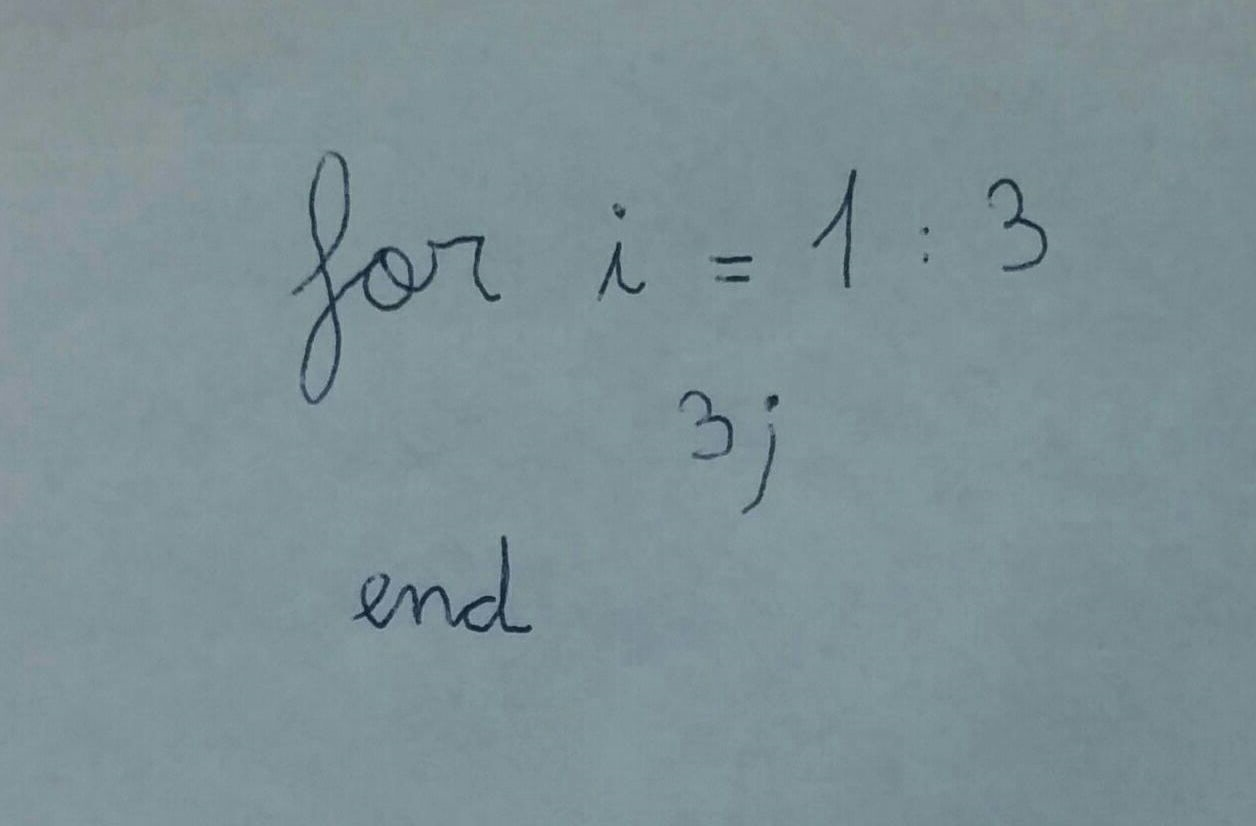 for i = 1 : 3
3j
end